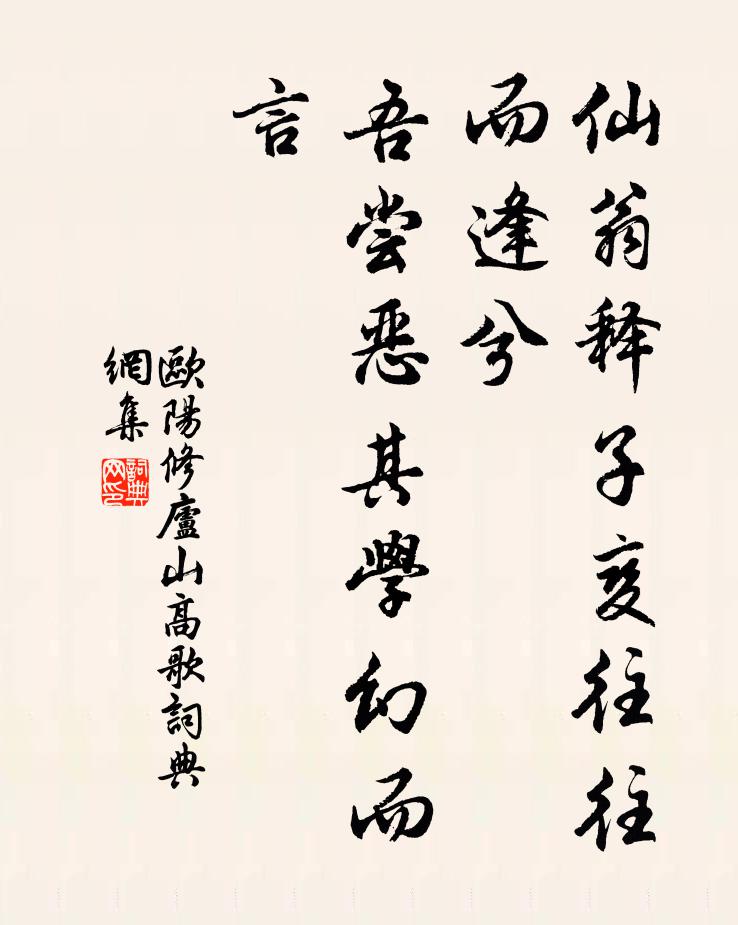 仙翁释子变往往
而逢兮
吾尝恶其學幻而
言
歐陽修廬山高歌詞典
網集
詞典
网印